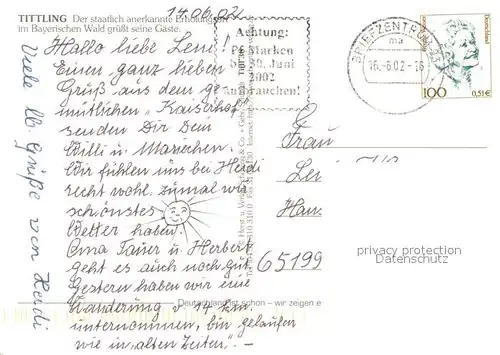 14.06.02
TITTLING Der staatlich anerkannte Erholungsort
im Bayerischen Wald grüßt seine Gäste.
Hallo liebe Lene!
Einen ganz lieben
Gruß aus dem ge-
mütlichen „Kaiserhof"
senden Dir Dein
Willi u. Mariechen.
Wir fühlen uns bei Heidi
recht wohl, zumal wir
schönstes
Wetter haben.
Oma Tauer u. Herbert
geht es auch noch gut
Gestern haben wir eine
Wanderung v. 14 km.
unternommen, bin gelaufen
wie in „alten Zeiten". –
Viele lb. Grüße von Heidi
Achtung:
Pf-Marken
bis 30. Juni
2002
aufbrauchen!
BRIEFZENTRUM
ma
16.-6.02-16
Deutschland
100
0,51€
Frau
Le
Han
65199
privacy protection
Datenschutz
Deutschland ist schön – wir zeigen e